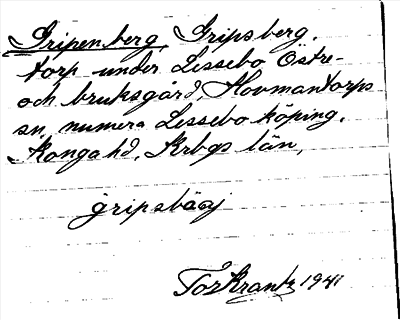 Gripenberg, Gripsberg,
torp under Lessebo Östre-
och bruksgård, Hovmantorps
sn, numera Lessebo köping,
Konga hd, Krbgs län,
gripsbäsj
Tor Krantz 1941